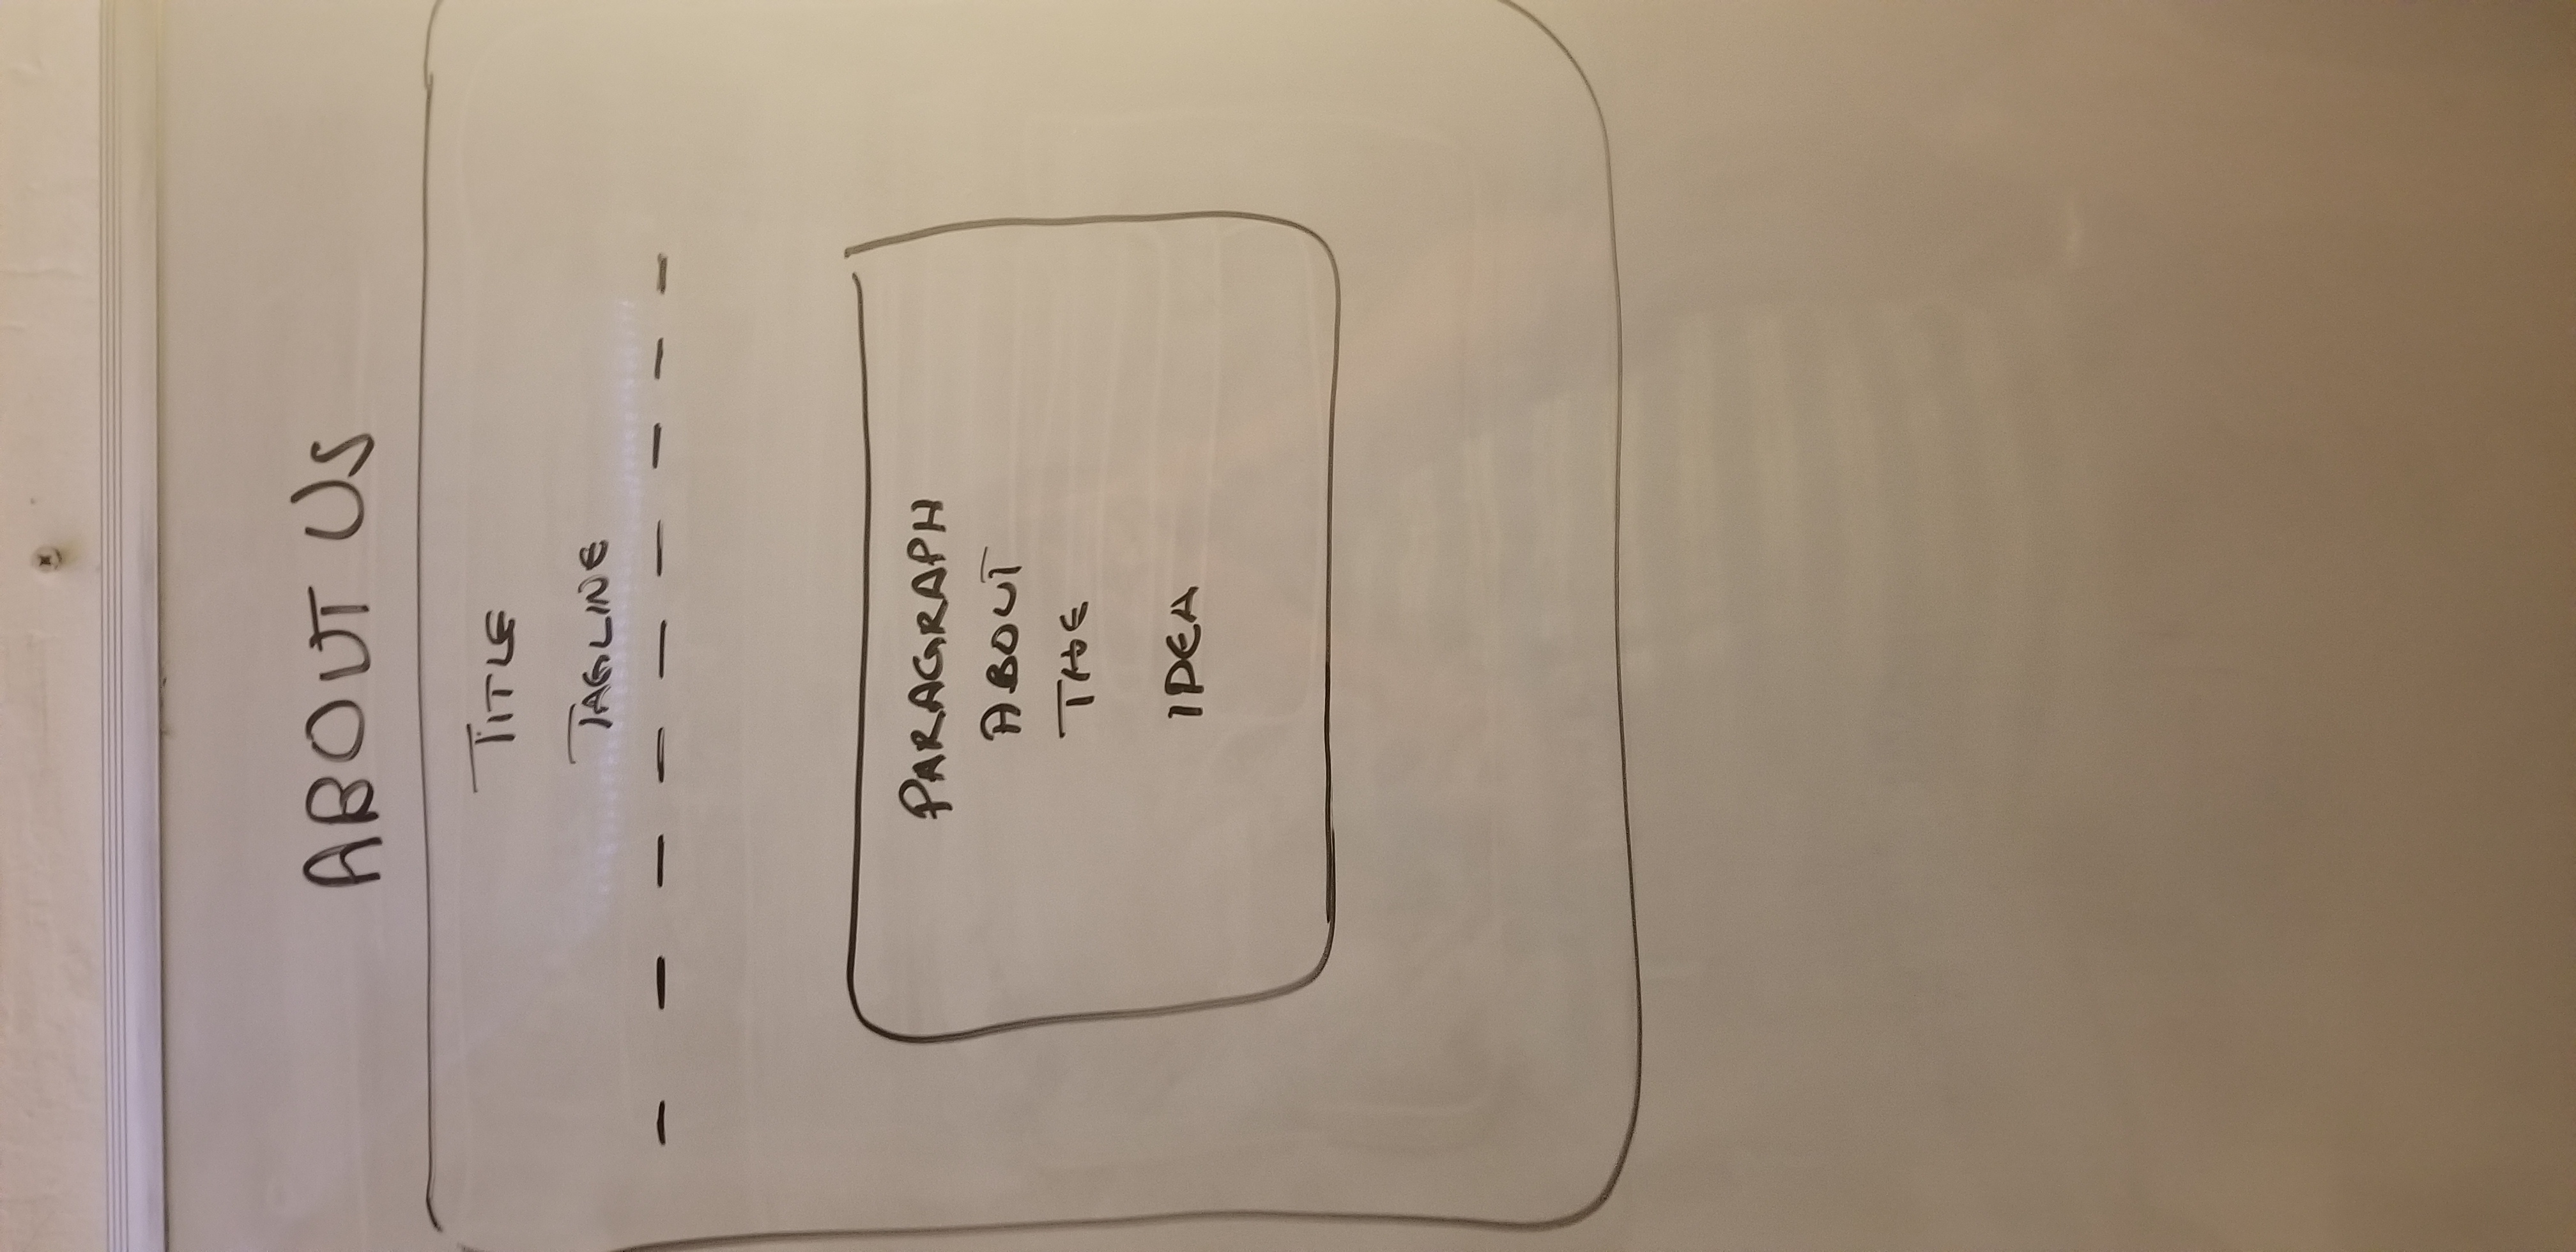 ABOUT US
TITLE
TAGLINE
PARAGRAPH
ABOUT
THE
IDEA